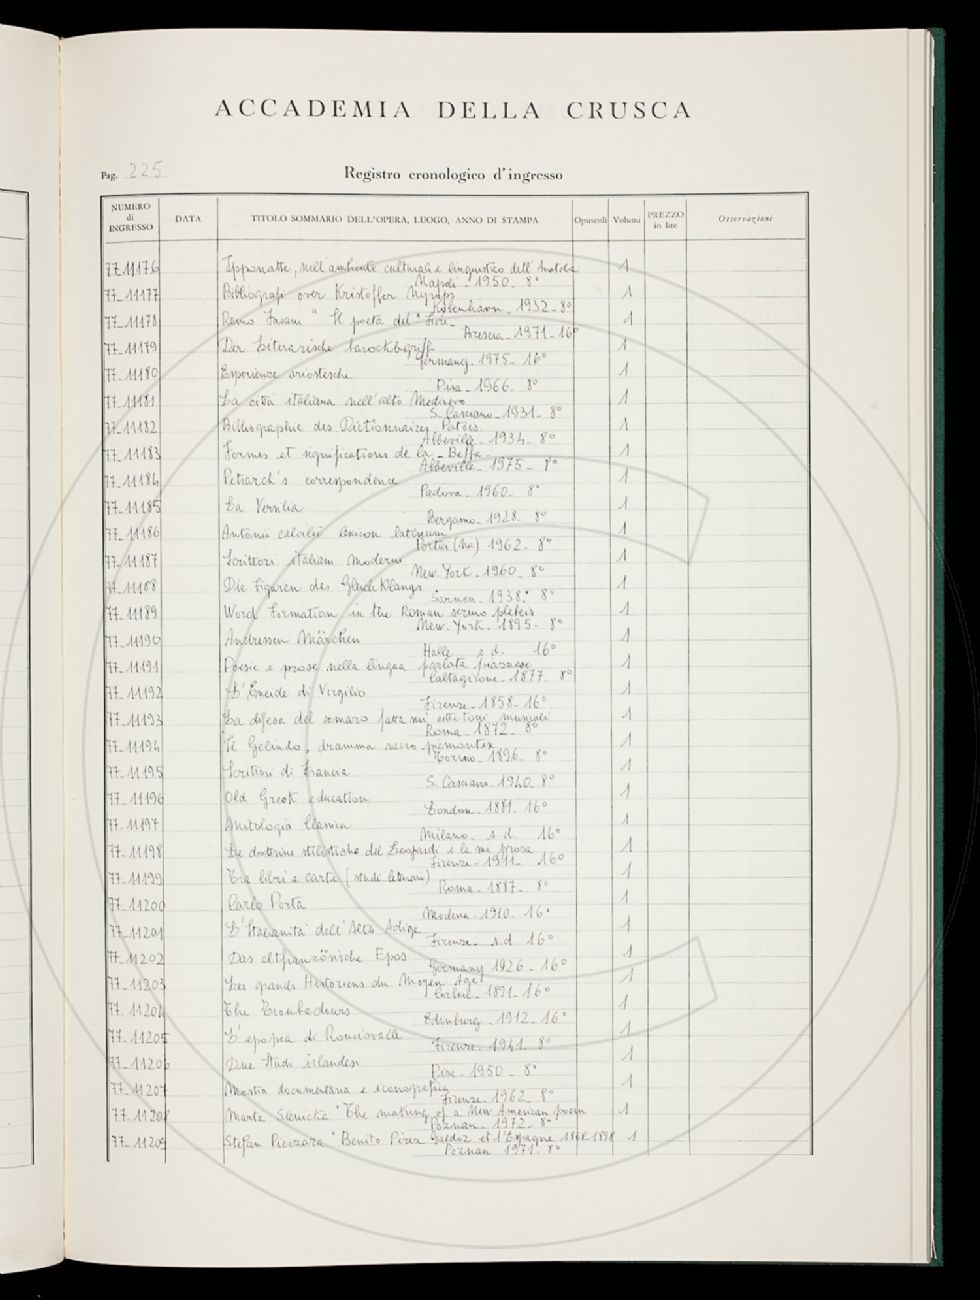 ACCADEMIA DELLA CRUSCA
Pag. 225
Registro cronologico d'ingresso
NUMERO di INGRESSO DATA TITOLO SOMMARIO DELL'OPERA, LUOGO, ANNO DI STAMPA Opuscoli Volumi PREZZO in lire Osservazioni
77-11176 Ipponatte, nell'ambiente culturale e linguistico dell'Anatolia 1
Napoli - 1950 - 8°
77-11177 Bibliografi over Kristoffer Nyrops 1
København - 1932 - 8°
77-11178 Remo Fasani "Il poeta del "Fiore" 1
Brescia - 1971 - 16°
77-11179 Der Literarische barockbegriff 1
Germany - 1975 - 16°
77-11180 Esperienze ariostesche 1
Pisa - 1966 - 8°
77-11181 La città italiana nell'alto Medioevo 1
S. Casciano - 1931 - 8°
77-11182 Bibliographie des Dictionnaires Patois. 1
Abbeville - 1934 - 8°
77-11183 Formes et significations de la - Beffa - 1
Abbeville - 1975 - 8°
77-11184 Petrarch's correspondence 1
Padova - 1960 - 8°
77-11185 La Versilia 1
Bergamo - 1928 - 8°
77-11186 Antonii calcilii lexicon latinum 1
Portici (Na) 1962 - 8°
77-11187 Scrittori italiani moderni 1
New York - 1960 - 8°
77-11188 Die Figuren des Gleichklangs 1
Sarnen - 1938 - 8°
77-11189 Word Formation in the Roman sermo plebeis 1
New York - 1895 - 8°
77-11190 Andressen Märchen 1
Halle s.d. 16°
77-11191 Poesie e prose nella lingua parlata piazzese 1
Caltagirone - 1877 - 8°
77-11192 L'Eneide di Virgilio 1
Firenze - 1858 - 16°
77-11193 La difesa del somaro fatta sui sette toni musicali 1
Roma - 1872 - 8°
77-11194 Il Gelindo, dramma sacro piemontese 1
Torino - 1896 - 8°
77-11195 Scrittori di Francia 1
S. Casciano - 1940 - 8°
77-11196 Old Greek education 1
London - 1881 - 16°
77-11197 Mitologia Classica 1
Milano - s.d. 16°
77-11198 Le dottrine stilistiche del Leopardi e la sua prosa 1
Firenze - 1911 - 16°
77-11199 Tra libri e carte (studi letterari) 1
Roma - 1887 - 8°
77-11200 Carlo Porta 1
Modena - 1910 - 16°
77-11201 L'Italianità dell'Alto Adige 1
Firenze - s.d. 16°
77-11202 Das altfranzösische Epos 1
Germany 1926 - 16°
77-11203 Les grands Historiens du Moyen Age 1
1891 - 16°
77-11204 The Troubadours 1
Edinburg - 1912 - 16°
77-11205 L'epopea di Roncisvalle 1
Firenze - 1941 - 8°
77-11206 Due Studi irlandesi 1
Pisa - 1950 - 8°
77-11207 Mostra documentaria e iconografica 1
Firenze - 1962 - 8°
77-11208 Marta Sienicka "The making of a New American poem 1
Poznan - 1972 - 8°
77-11209 Stefan "Benito Pérez Galdoz et l'Espagne 1868-1898 1
Poznan 1971 - 8°